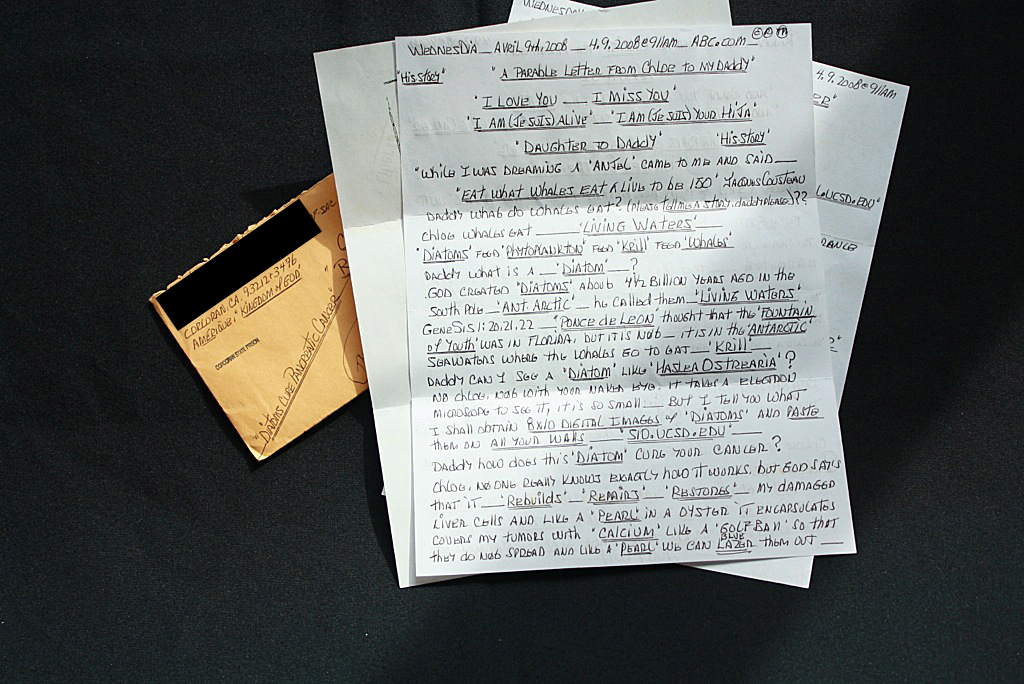 WEDNESDIA __ AVRIL 9TH, 2008 __ 4.9.2008@911AM __ ABC.COM __
"HIS STORY" "A PARABLE LETTER FROM CHLOE TO MY DADDY"
"I LOVE YOU ___ I MISS YOU"
"I AM (JE SUIS) ALIVE" "I AM (JE SUIS) YOUR HIJA"
"DAUGHTER TO DADDY" "HIS-STORY"
"WHILE I WAS DREAMING A 'ANJEL' CAME TO ME AND SAID ___
"EAT WHAT WHALES EAT & LIVE TO BE 150" JACQUES COUSTEAU
DADDY WHAT DO WHALES EAT? (PLEASE TELL ME A STORY, DADDY PLEASE)??
CHLOE WHALES EAT ___ 'LIVING WATERS' ___
'DIATOMS' FEED 'PHYTOPLANKTON' FEED 'KRILL' FEED 'WHALES'
DADDY WHAT IS A __ 'DIATOM' __ ?
GOD CREATED 'DIATOMS' ABOUT 4½ BILLION YEARS AGO IN THE
SOUTH POLE __ 'ANT.ARCTIC' __ HE CALLED THEM __ 'LIVING WATERS'
GENESIS 1:20,21,22 __ 'PONCE DE LEON' THOUGHT THAT THE 'FOUNTAIN
OF YOUTH' WAS IN FLORIDA, BUT IT IS NOT __ IT IS IN THE 'ANTARCTIC'
SEAWATERS WHERE THE WHALES GO TO EAT __ 'KRILL' __
DADDY CAN I SEE A 'DIATOM' LIKE 'HASLEA OSTREARIA' ?
NO CHLOE, NOT WITH YOUR NAKED EYE. IT TAKES A ELECTRON
MICROSCOPE TO SEE IT, IT IS SO SMALL __ BUT I TELL YOU WHAT
I SHALL OBTAIN 8X10 DIGITAL IMAGES OF 'DIATOMS' AND PASTE
THEM ON ALL YOUR WALLS ___ SIO.UCSD.EDU ___
DADDY HOW DOES THIS 'DIATOM' CURE YOUR CANCER ?
CHLOE, NO ONE REALLY KNOWS EXACTLY HOW IT WORKS, BUT GOD SAYS
THAT IT __ 'REBUILDS' __ 'REPAIRS' __ 'RESTORES' __ MY DAMAGED
LIVER CELLS AND LIKE A 'PEARL' IN A OYSTER IT ENCAPSULATES
COVERS MY TUMORS WITH 'CALCIUM' LIKE A 'GOLF BALL' SO THAT
THEY DO NOT SPREAD AND LIKE A 'PEARL' WE CAN BLUE LAZER THEM OUT ___
WEDNESDAY
4.9.2008@911AM
.UCSD.EDU
CORCORAN, CA. 93212+3476
AMERIQUE, "KINGDOM OF GOD"
CORCORAN STATE PRISON
"DIATOMS CURE PANCREATIC CANCER"